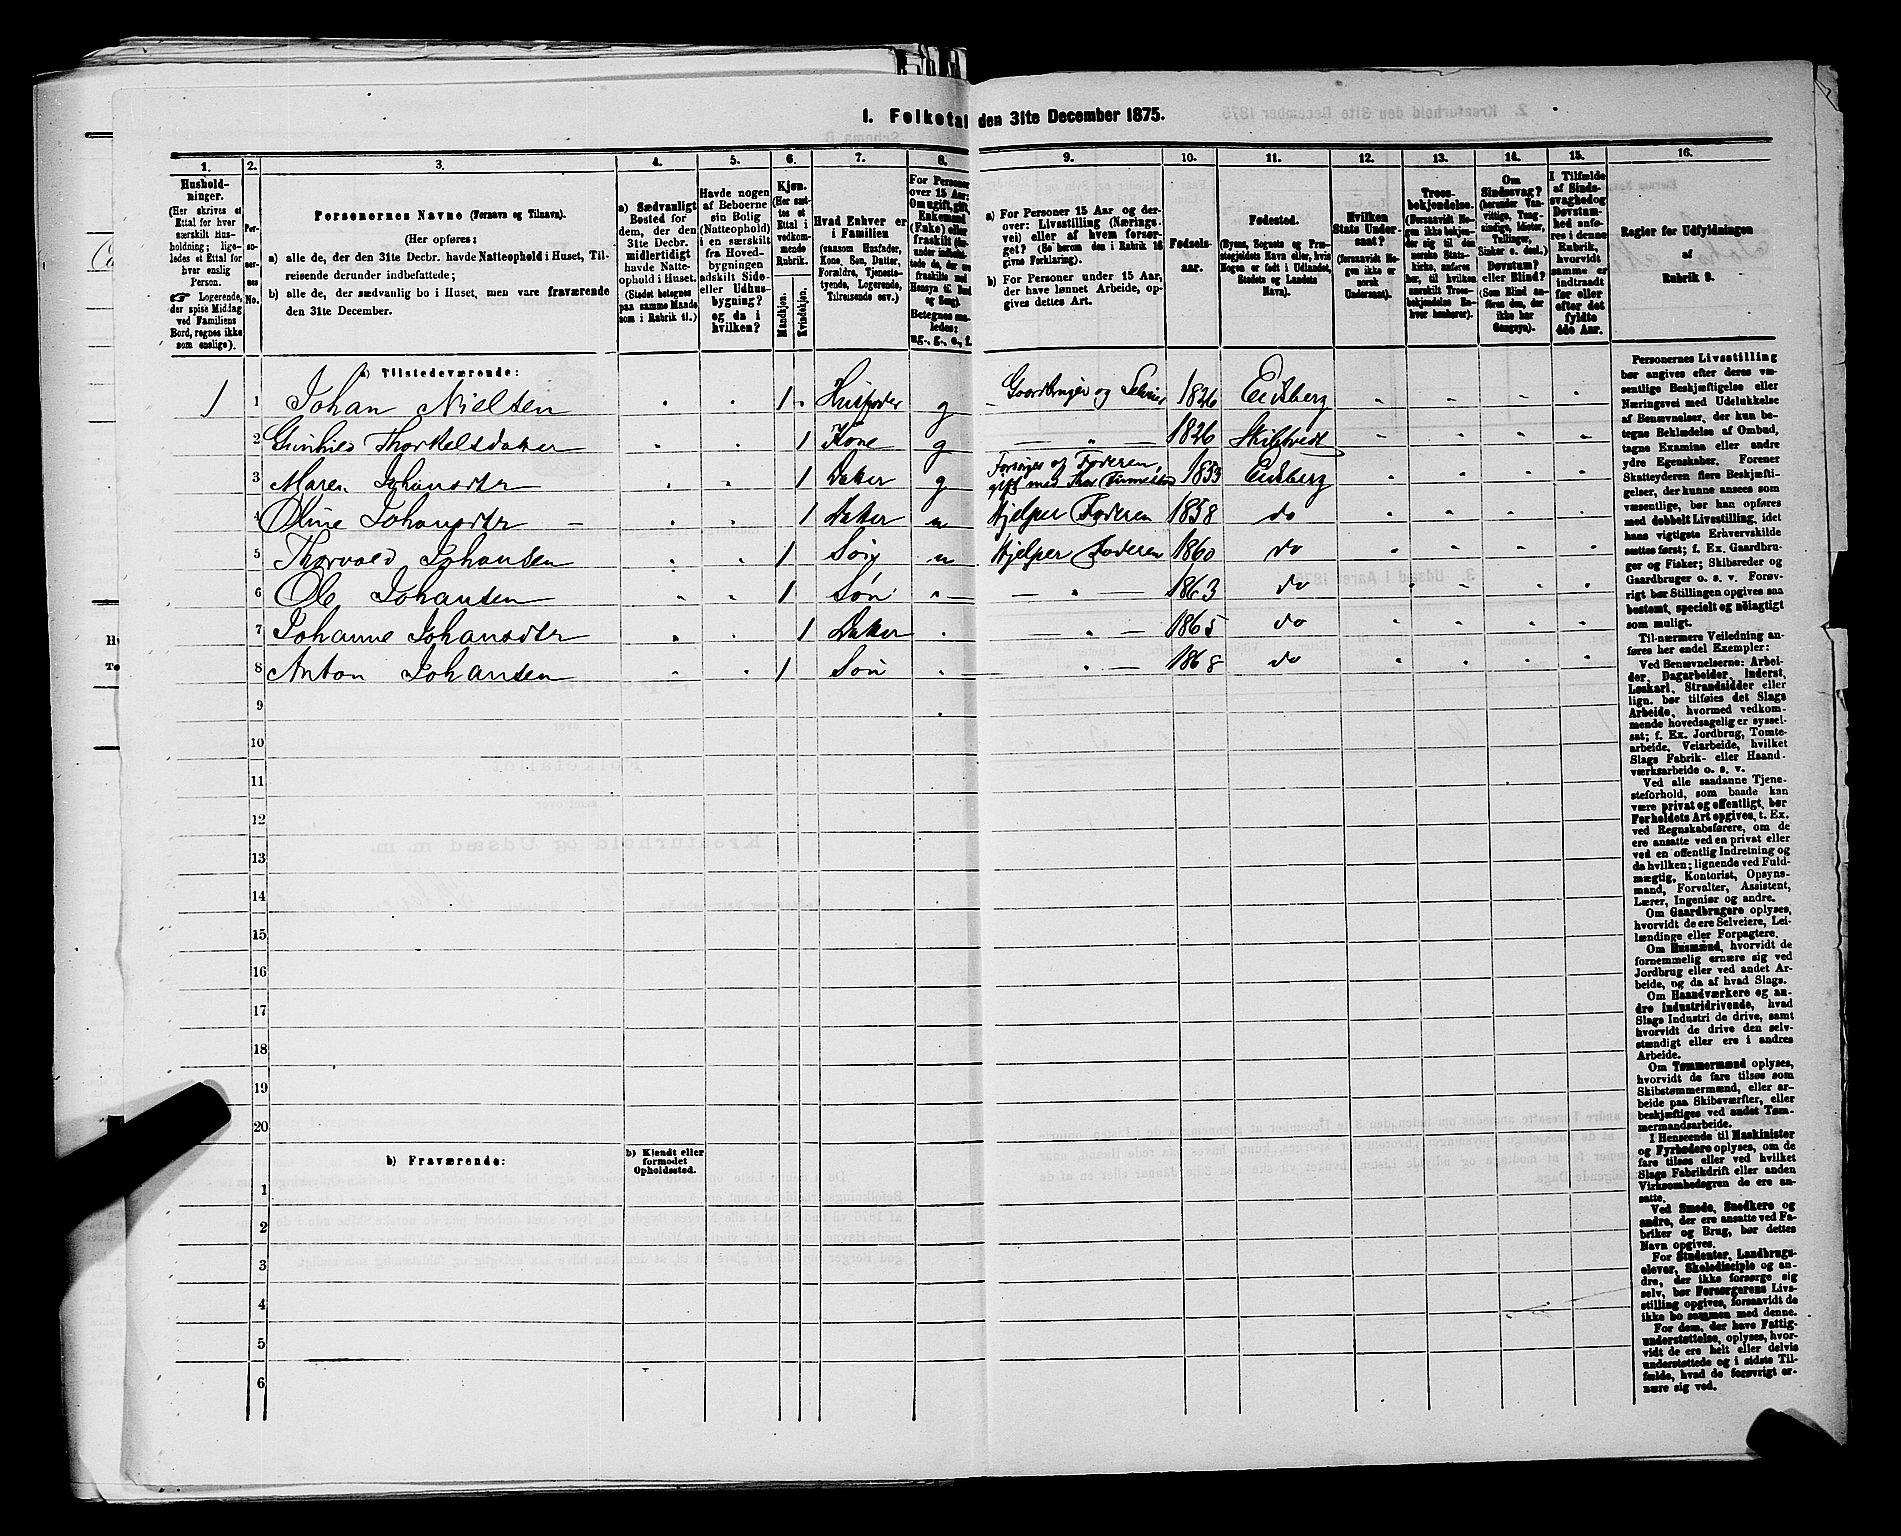 1. Folketal den 31te December 1875.
1.
Hushold-
ninger.
(Her skrives et
Ettal for hver
særskilt Hus-
holdning; lige-
ledes et Ettal for
hver enslig
Person.
☛ Logerende,
der spise Middag
ved Familiens
Bord, regnes ikke
som enslige).
2.
Per-
so-
ner-
nes
No.
3.
Personernes Navne (Fornavn og Tilnavn).
(Her opføres:
a) alle de, der den 31te Decbr. havde Natteophold i Huset, Til-
reisende derunder indbefattede;
b) alle de, der sædvanlig bo i Huset, men vare fraværende
den 31te December.
4.
a) Sædvanligt
Bosted for
dem, der den
31te Decbr.
midlertidigt
havde Natte-
ophold i Huset.
(Stedet betegnes
paa samme Maade
som i Rubrik 11.)
5.
Havde nogen
af Beboerne
sin Bolig
(Natteophold)
i en særskilt
fra Hoved-
bygningen
adskilt Side-
eller Udhus-
bygning?
og da i
hvilken?
6.
Kjøn.
(Her sæt-
tes et
Ettal i
vedkom-
mende
Rubrik.
Mandkjøn.
Kvindekjøn.
7.
Hvad Enhver er
i Familien
(saasom Husfader,
Kone, Søn, Datter,
Forældre, Tjeneste-
tyende, Logerende,
Tilreisende osv.)
8.
For Personer
over 15 Aar:
Om ugift, gift,
Enkemand
(Enke) eller
fraskilt
Betegnes saa-
ledes:
ug., g., e., f.
9.
a) For Personer 15 Aar og der-
over: Livsstilling (Nærings-
vei) eller af hvem forsør-
get? (Se herom den i Rubrik 16
givne Forklaring).
b) For Personer under 15 Aar,
der have lønnet Arbeide, op-
gives dettes Art.
10.
Fødsels-
aar.
11.
Fødested.
(Byens, Sognets og Præ-
stegjeldets Navn eller, hvis
Nogen er født i Udlandet,
Stedets og Landets
Navn).
12.
Hvilken
Stats Under-
saat?
(forsaavidt No-
gen ikke er
norsk
Undersaat).
13.
Troes-
bekjendelse.
(Forsaavidt No-
gen ikke bekjen-
der sig til den
norske Stats-
kirke, anføres
her, til hvilken
særskilt Troes-
bekjendelse En-
hver henhører).
14.
Om
Sindssvag?
(herunder Van-
vittige, Tung-
sindige, Idioter,
Tullinger,
Sinker o. desl.)
Døvstum?
eller Blind?
(Som Blind an-
føres den, der
ikke har
Gangsyn).
15.
I Tilfælde
af Sinds-
svaghed og
Døvstum-
hed anfø-
res i denne
Rubrik,
hvorvidt
samme er
indtraadt
før eller
efter det
fyldte
4de Aar.
16.
Regler for Udfyldningen
af
Rubrik 9.
a) Tilstedeværende:
1 1 Johan Nielsen 1 Husfader g Gaardbruger og Selveier 1826 Eidsberg
2 Thorkelsdatter 1 Kone g — " — 1826 Skibtvedt
3 Maren Johansdtr 1 Datter g Forsørges af Faderen, gift med 1853 Eidsberg
4 Oline Johansdtr 1 Datter u Hjelper Faderen 1858 do
5 Thorvald Johansen 1 Søn u Hjelper Faderen 1860 do
6 Ole Johansen 1 Søn — " — 1863 do
7 Johanne Johansdtr 1 Datter — " — 1865 do
8 Anton Johansen 1 Søn " — 1868 do
9
10
11
12
13
14
15
16
17
18
19
20
b) Fraværende:
b) Kjendt eller
formodet
Opholdssted.
1
2
3
4
5
6
Personernes Livsstilling
bør angives efter deres væ-
sentlige Beskjæftigelse eller
Næringsvei med Udelukkelse
af Benævnelser, der kun be-
tegne Beklædelse af Ombud,
tagne Examina eller andre
ydre Egenskaber. Forener
Skatteyderen flere Beskjæfti-
gelser, der kunne ansees som
væsentlige, bør han opføres
med dobbelt Livsstilling, idet
hans vigtigste Erhvervskilde
sættes først; f. Ex. Gaardbru-
ger og Fisker; Skibsreder og
Gaardbruger o. s. v. Forøv-
rigt bør Stillingen opgives saa
bestemt, specielt og nøiagtigt
som muligt.
Til nærmere Veiledning an-
føres her endel Exempler:
Ved Benævnelserne: Arbei-
der, Dagarbeider, Inderst,
Løskarl, Strandsidder eller
lign. bør tilføies det Slags
Arbeide, hvormed vedkom-
mende hovedsagelig er syssel-
sat; f. Ex. Jordbrug, Tomte-
arbeide, Veiarbeide, hvilket
Slags Fabrik- eller Haand-
værksarbeide o. s. v.
Ved alle saadanne Tjene-
steforhold, som baade kan
være privat og offentligt, bør
Forholdets Art opgives, t. Ex.
ved Regnskabsførere, om de
ere ansatte ved en privat eller
ved en offentlig Indretning og
da hvilken; lignende ved Fuld-
mægtig, Kontorist, Opsyns-
mand, Forvalter, Assistent,
Lærer, Ingeniør og andre.
Om Gaardbrugere oplyses,
hvorvidt de ere Selveiere, Lei-
lændinge eller Forpagtere.
Om Husmænd, hvorvidt de
fornemmelig ernære sig ved
Jordbrug eller ved andet Ar-
beide, og da af hvad Slags.
Om Haandværkere og an-
dre industridrivende, hvad
Slags Industri de drive, samt
hvorvidt de drive den selv-
stændigt eller ere i andres
Arbeide.
Om Tømmermænd oplyses,
hvorvidt de fare tilsøs som
Skibstømmermænd, eller ar-
beide paa Skibsværfter, eller
beskjæftiges ved andet Tøm-
mermandsarbeide.
I Henseende til Maskinister
og Fyrbødere oplyses, om de
fare tilsøs eller ved hvilket
Slags Fabrikdrift eller anden
Virksomhedsgren de ere an-
satte.
Ved Smede, Snedkere og
andre, der ere ansatte ved Fa-
briker og Brug, bør dettes
Navn opgives.
For Studenter, Landbrugs-
elever, Skoledisciple og an-
dre, der ikke forsørge sig
selv, bør Forsørgerens Livs-
stilling opgives, forsaavidt de
ikke bo sammen med denne.
For dem, der have Fattig-
understøttelse, oplyses, hvor-
vidt de ere helt eller delvis
understøttede og i sidste Til-
fælde, hvad de forøvrigt er-
nære sig ved.